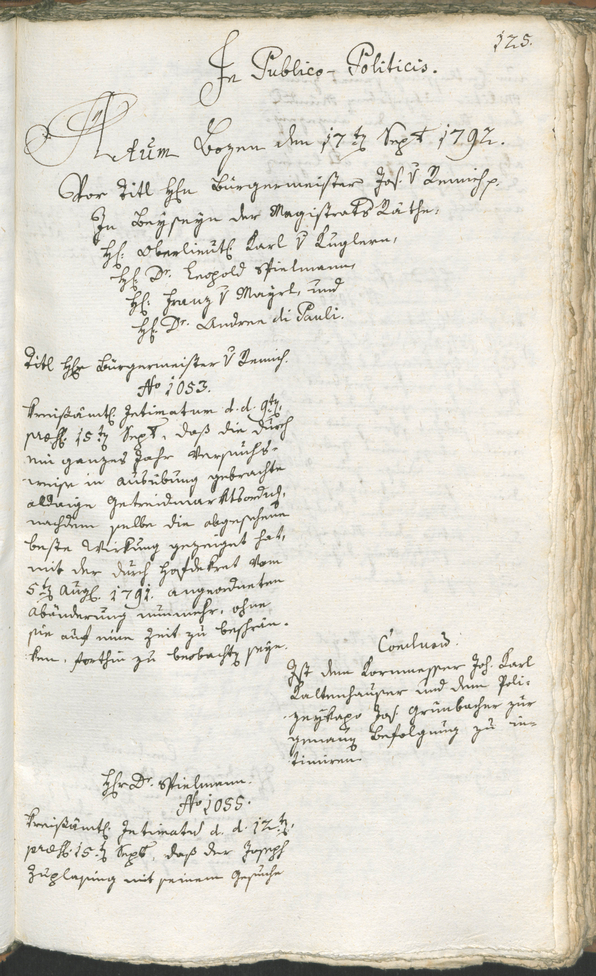 125.
In Publico-Politicis.
Actum Bozen den 17t Sept. 1792.
Vor Titl Hhn Bürgermeister Jos. v Remich p.
In Beyseyn der Magistrats Räthe,
Hh: Oberlieut: Karl v Kuglern,
Hh Dr. Leopold Spielmann,
Hh: Franz v Mayrl, und
Hh Dr. Andree di Pauli.
Titl Hhr Bürgermeister v Remich.
No 1053.
Kreißämtl. Intimatum d. d. 9t,
præs: 15t Sept., daß die durch
ein ganzes Jahr Versuchs-
weise in Ausübung gebrachte
alldaige Getreidmarktsordng,
nachdem selbe die abgesehene
beste Wirkung gezeiget hat,
mit der durch Hofdekret vom
5t Aug. 1791. angeordneten
Abänderung nunmehr, ohne
sie auf eine Zeit zu beschrän-
ken, forthin zu beobachten seye.
Conclusum:
Ist dem Kornmesser Joh. Karl
Kaltenhauser und dem Poli-
zeykapo Jos. Grünbacher zur
genauen Befolgung zu in-
timiren.
Hhr Dr. Spielmann.
No 1055.
Kreißämtl. Intimatum d. d. 12t,
præs: 15t Sept., daß der Joseph
mit seinem Gesuche